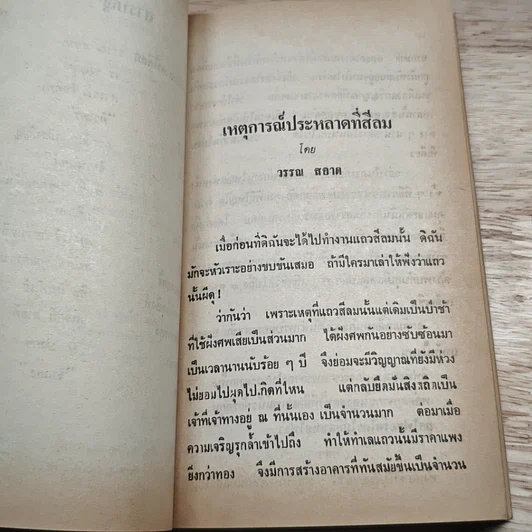 เหตุการณ์ประหลาดที่สีลม
โดย
วรรณ สอาด
เมื่อก่อนที่ดิฉันจะได้ไปทำงานแถวสีลมนั้น ดิฉัน
มักจะหัวเราะอย่างขบขันเสมอ ถ้ามีใครมาเล่าให้ฟังว่าแถว
นั้นผีดุ!
ว่ากันว่า เพราะเหตุที่แถวสีลมนั้นแต่เดิมเป็นป่าช้า
ที่ใช้ฝังศพเสียเป็นส่วนมาก ได้ฝังศพกันอย่างซับซ้อนมา
เป็นเวลานานนับร้อย ๆ ปี จึงย่อมจะมีวิญญาณที่ยังมีห่วง
ไม่ยอมไปผุดไปเกิดที่ไหน แต่กลับยึดมั่นสิงสถิตเป็น
เจ้าที่เจ้าทางอยู่ ณ ที่นั้นเอง เป็นจำนวนมาก ต่อมาเมื่อ
ความเจริญรุกล้ำเข้าไปถึง ทำให้ทำเลแถวนั้นมีราคาแพง
ยิ่งกว่าทอง จึงมีการสร้างอาคารที่ทันสมัยขึ้นเป็นจำนวน